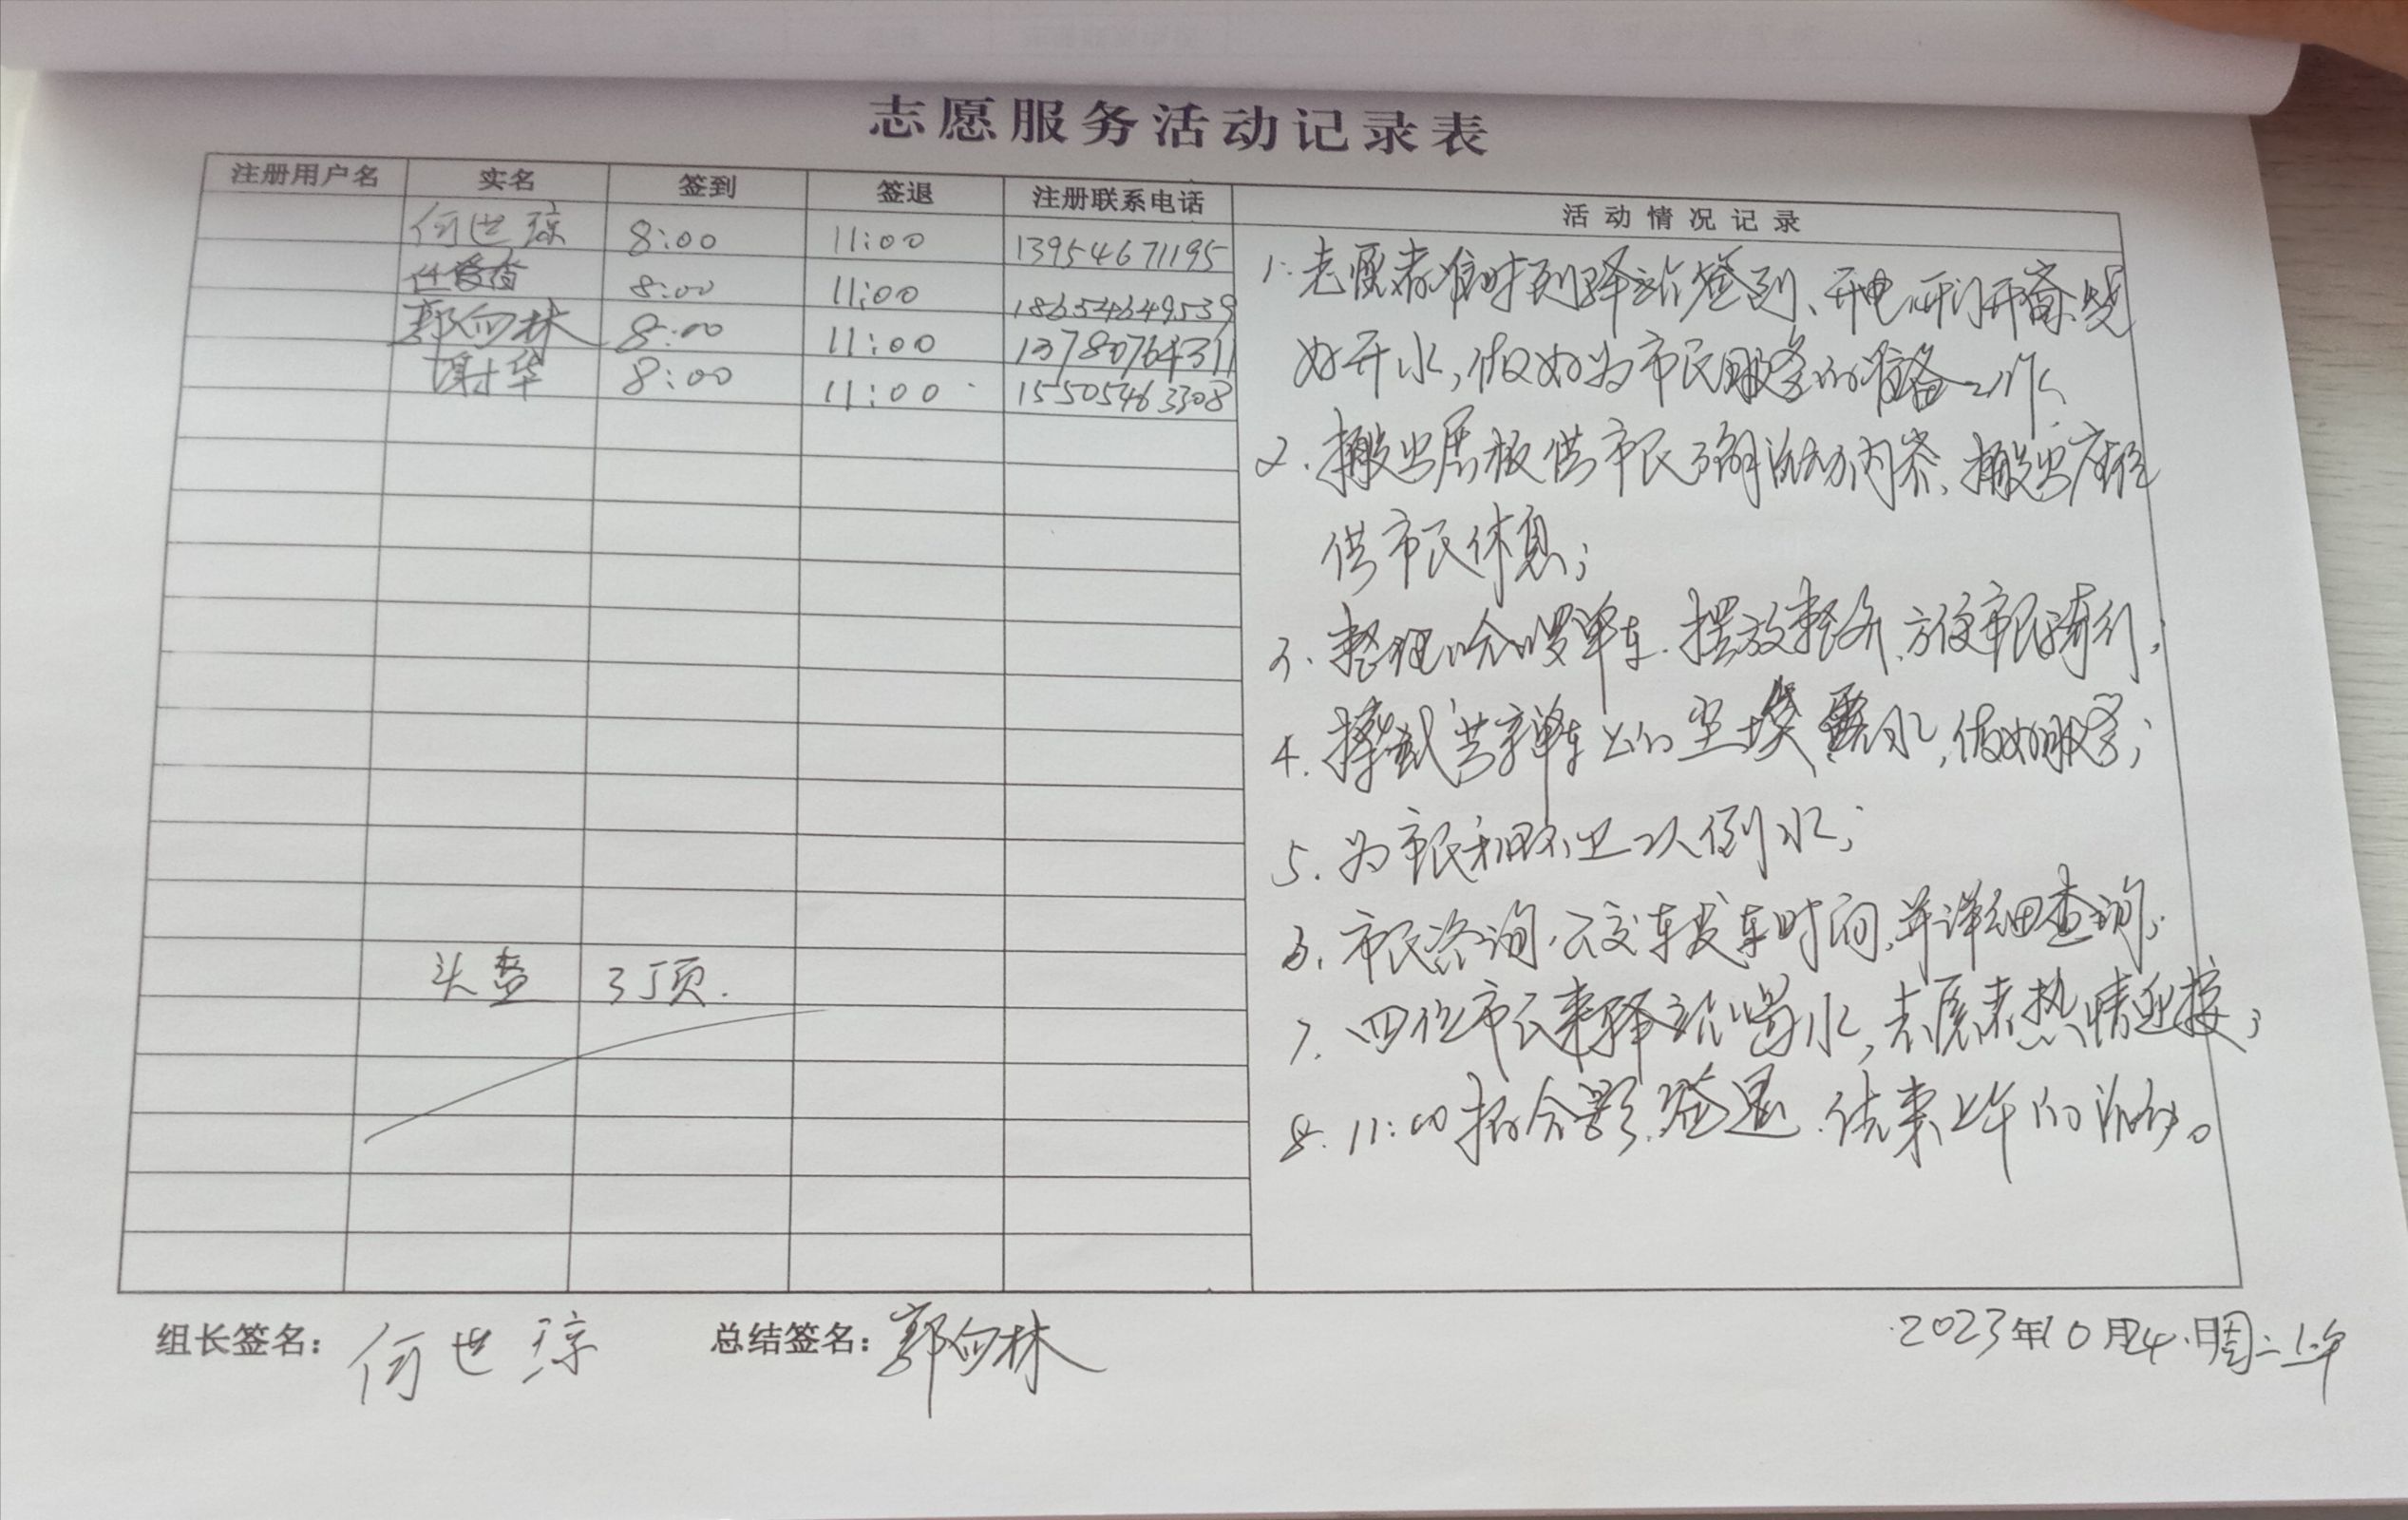 志愿服务活动记录表
注册用户名 实名 签到 签退 注册联系电话 活动情况记录
何世琼 8:00 11:00 13954671195
8:00 11:00 18654649539
郭向林 8:00 11:00 13780764311
谢华 8:00 11:00 15505463308
头盔 3顶.
1.志愿者准时到驿站签到、开电、开门开窗、烧
好开水,做好为市民服务的准备工作、
2.搬出展板供市民了解活动内容、搬出座位
供市民休息;
3.整理哈啰单车.摆放整齐、方便市民骑行;
4.擦拭共享单车上的尘埃、露水,做好服务;
5.为市民和环卫工人倒水;
6.市民咨询公交车发车时间,并详细查询;
7.四位市民来驿站喝水,志愿者热情迎接;
8.11:00拍合影.签退.结束上午的活动。
组长签名: 何世琼 总结签名: 郭向林 2023年10月24日周二上午